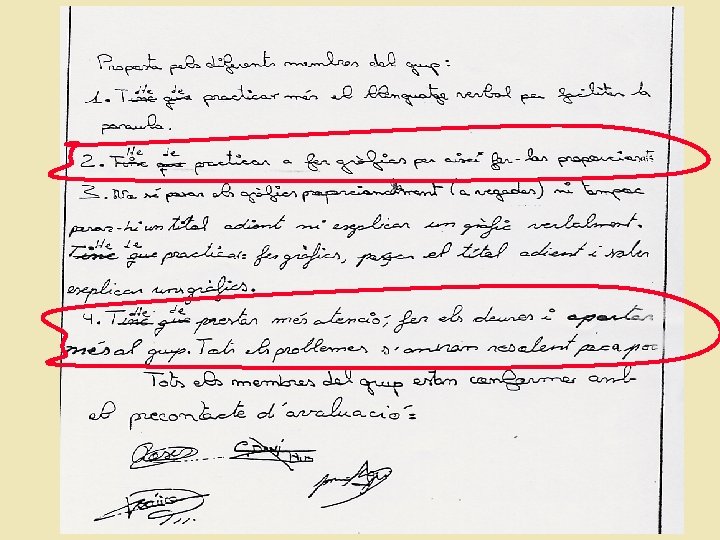 Proposta pels diferents membres del grup:
1. Tinc que He de practicar més el llenguatge verbal per facilitar la
paraula.
2. Tinc que He de practicar a fer gràfics per aixi fer-los proporcionats
3. No sé posar els gràfics proporcionalment (a vegades) ni tampoc
posar-hi un titol adient ni explicar un gràfic verbalment.
Tinc que He de practicar: fer gràfics, posar el titol adient i saber
explicar un gràfics.
4. Tinc que He de prestar més atenció, fer els deures i aportar
més al grup. Tots els problemes s'aniran resolent poc a poc
Tots els membres del grup estan conformes amb
el precontacte d'avaluació: